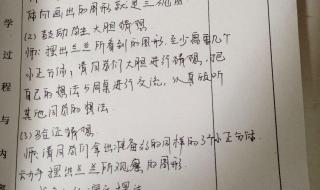 学
过
程
与
内
体向画出的图形就是三视图
(2)鼓励学生大胆猜想
师:摆出兰兰所看到的图形,至少需要几个
小正方体,请同学们大胆进行猜想,把
自己的想法与同桌进行交流,认真听
其他同学的想法.
(3)验证猜想
师:请同学们拿出准备好的同样的3个小正方体,
动手摆出兰兰所观察的图形.